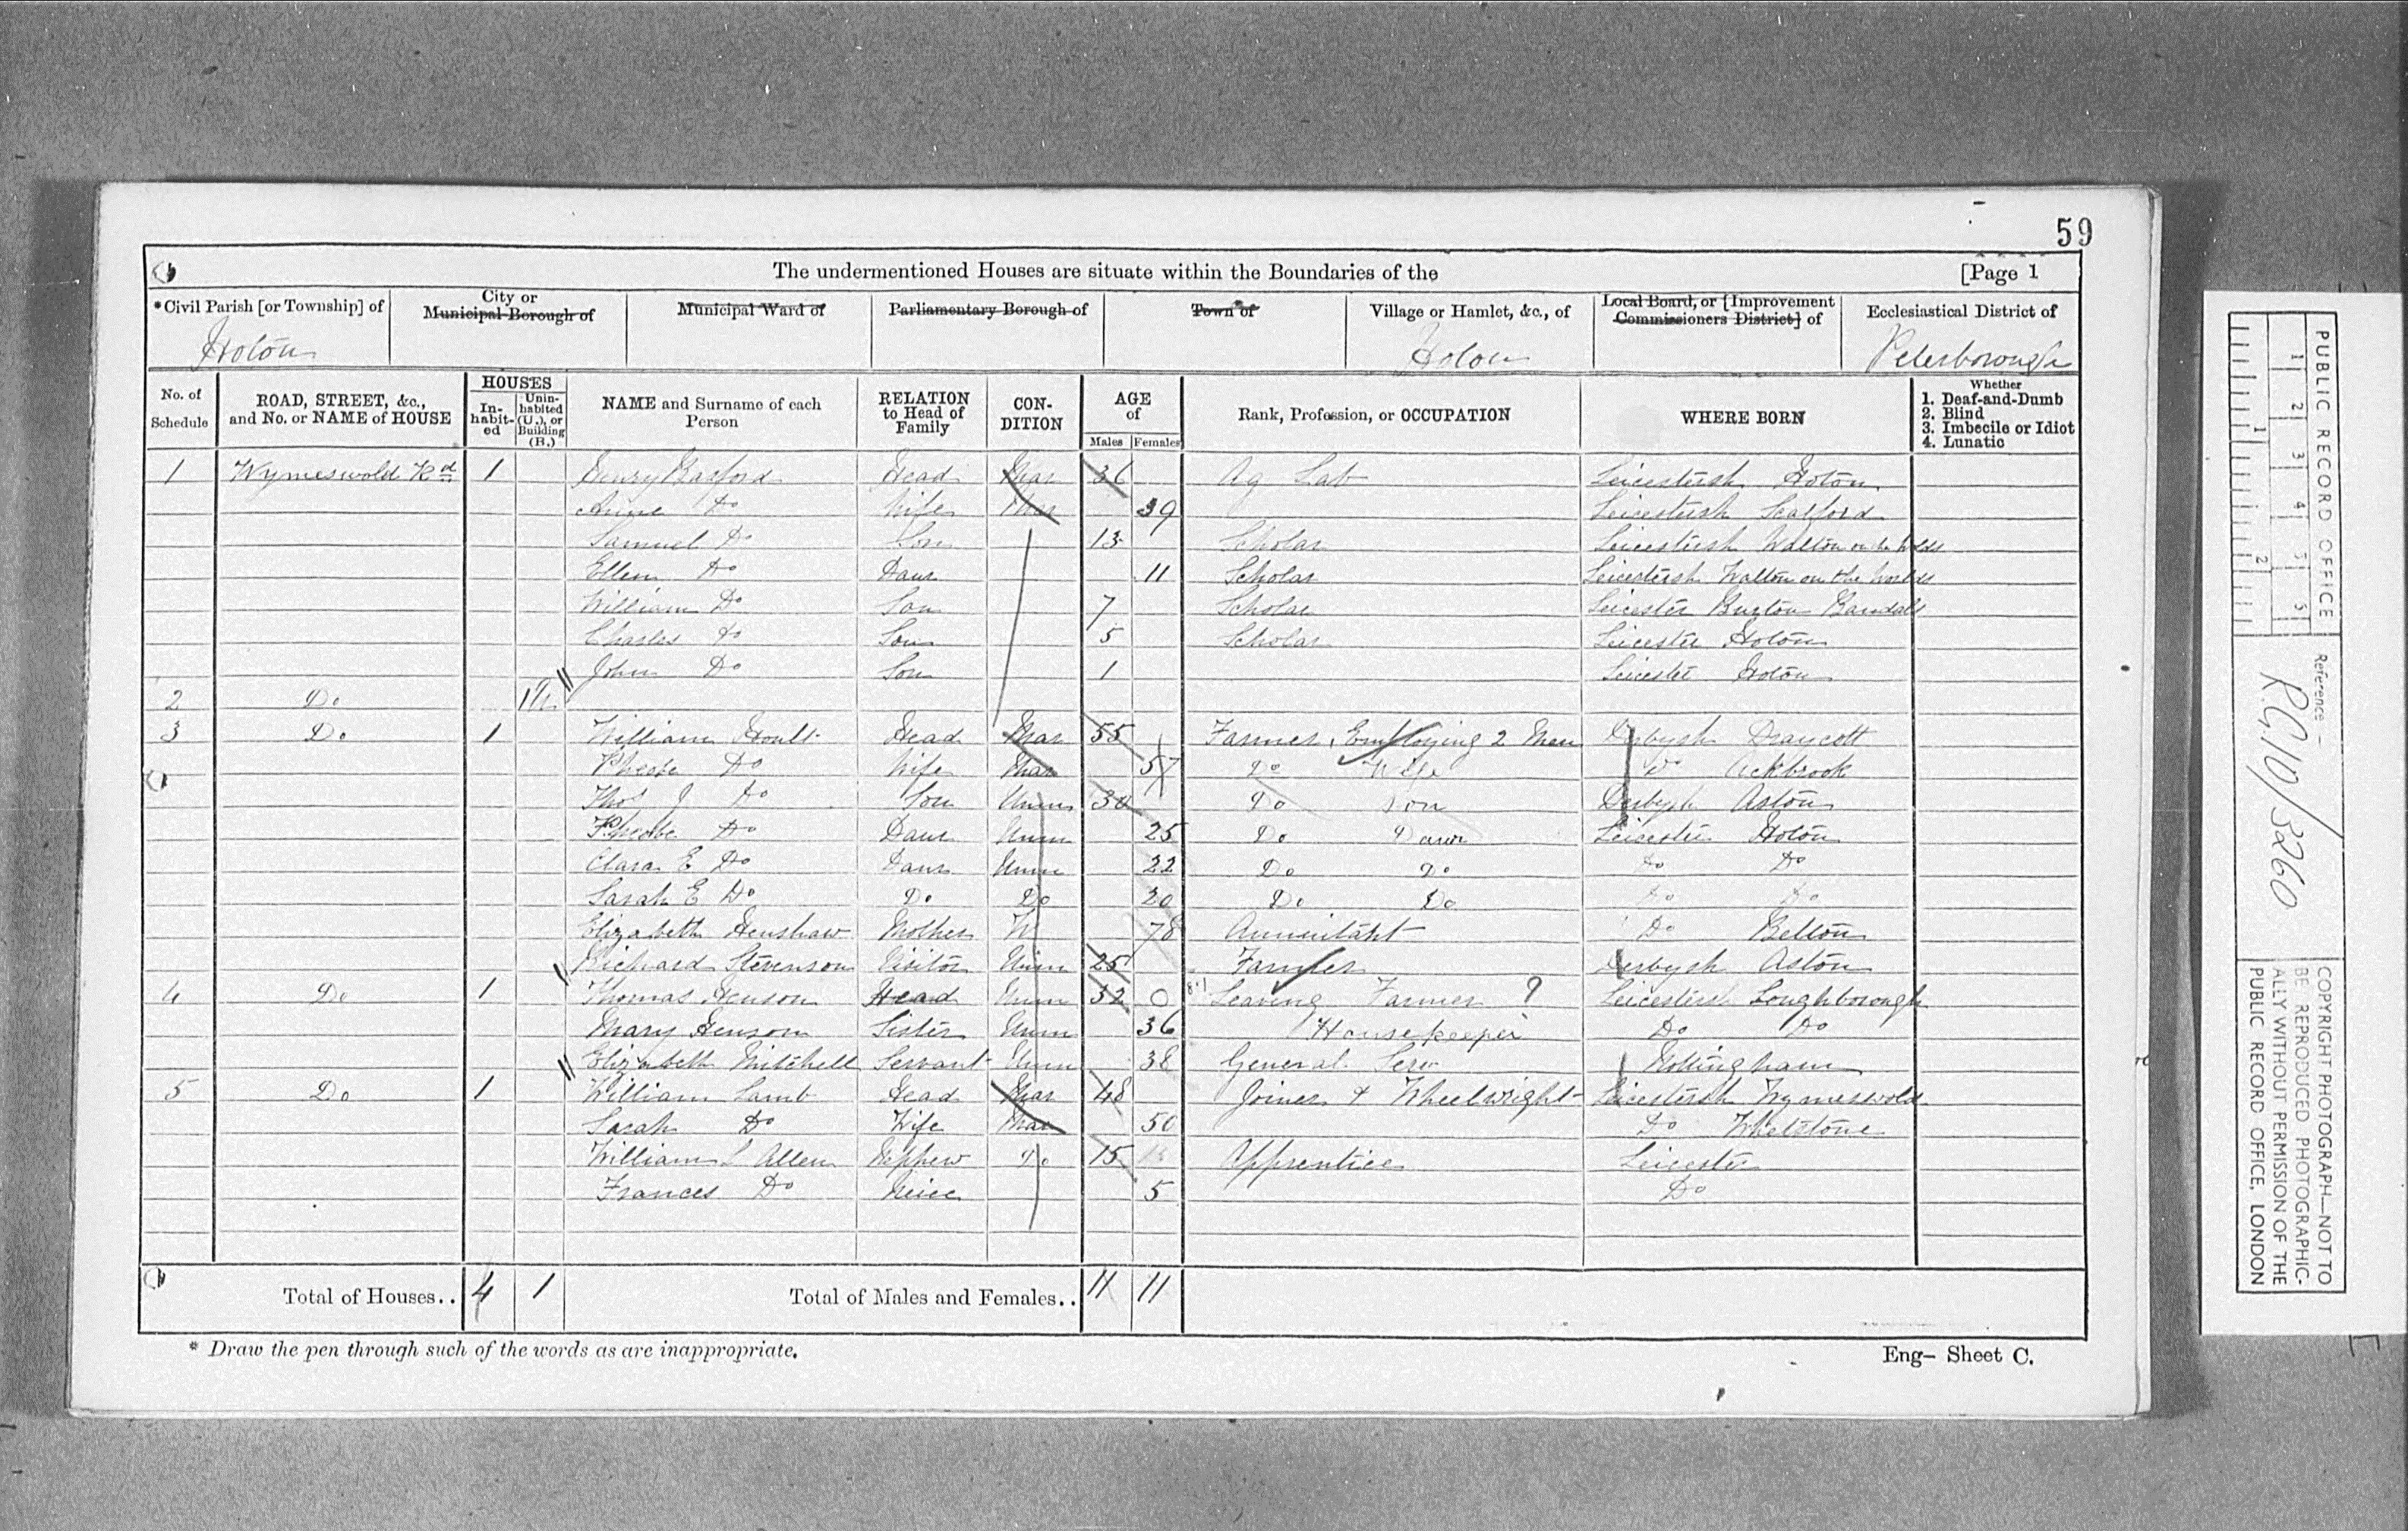 59
The undermentioned Houses are situate within the Boundaries of the [Page 1
*Civil Parish [or Township] of
City or Municipal Borough of
Municipal Ward of
Parliamentary Borough of
Town of
Village or Hamlet, &c., of
Local Board, or [Improvement Commissioners District] of
Ecclesiastical District of
Hoton Hoton Peterborough
No. of Schedule
ROAD, STREET, &c., and No. or NAME of HOUSE
HOUSES
In-habit-ed
Unin-habited (U.), or Building (B.)
NAME and Surname of each Person
RELATION to Head of Family
CON-DITION
AGE of
Males Females
Rank, Profession, or OCCUPATION
WHERE BORN
Whether
1. Deaf-and-Dumb
2. Blind
3. Imbecile or Idiot
4. Lunatic
1 Wymeswold Rd 1 Henry Basford Head Mar 36 Ag Lab Leicestersh Hoton
Anne Do Wife Mar 39 Leicestersh Scalford
Samuel Do Son 13 Scholar Leicestersh Walton on the Wolds
Ellen Do Daur 11 Scholar Leicestersh Walton on the Woulds
William Do Son 7 Scholar Leicester Burton Bandals
Charles Do Son 5 Scholar Leicester Hoton
John Do Son 1 Leicester Hoton
2 Do 1U
3 Do 1 William Hoult Head Mar 55 Farmer, Employing 2 Men Derbysh Draycott
Pheobe Do Wife Mar 57 Do Wife Do Ockbrook
Thos J Do Son Unm 30 Do Son Derbysh Aston
Pheobe Do Daur Unm 25 Do Daur Leicester Hoton
Clara E Do Daur Unm 22 Do Do Do Do
Sarah E Do Do Do 20 Do Do Do Do
Elizabeth Henshaw Mother W 78 Annuitant Do Belton
Richard Stevenson Visitor Unm 25 Farmer Derbysh Aston
4 Do 1 Thomas Henson Head Unm 32 0 Leaving Farmer ? Leicestersh Loughborough
Mary Henson Sister Unm 36 Housekeeper Do Do
Elizabeth Mitchell Servant Unm 38 General Serv Nottingham
5 Do 1 William Lamb Head Mar 48 Joiner & Wheelwright Leicestersh Wymeswold
Sarah Do Wife Mar 50 Do Whetstone
William L Allen Nephew Do 15 Apprentice Leicester
Frances Do Neice 5 Do
Total of Houses.. 4 1 Total of Males and Females.. 11 11
* Draw the pen through such of the words as are inappropriate.
Eng- Sheet C.
PUBLIC RECORD OFFICE
1 2 3 4 5 6
1 2
Reference -
RG 10/3260
COPYRIGHT PHOTOGRAPH—NOT TO
BE REPRODUCED PHOTOGRAPHIC-
ALLY WITHOUT PERMISSION OF THE
PUBLIC RECORD OFFICE, LONDON